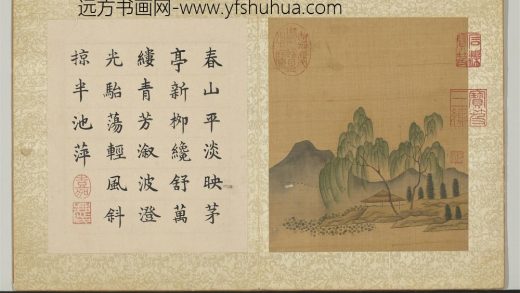 远方书画网-www.yfshuhua.com
春山平淡映茅
亭新栁纔舒萬
縷青芳溆波澄
光駘蕩輕風斜
掠半池萍